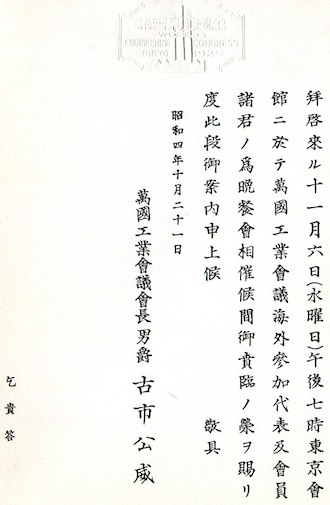 WORLD
ENGINEERING CONGRESS
TOKYO 1929
拜啓來ル十一月六日(水曜日)午後七時東京會
館ニ於テ萬國工業會議海外參加代表及會員
諸君ノ爲晩餐會相催候間御貴臨ノ榮ヲ賜リ
度此段御案内申上候　敬具
昭和四年十月二十一日
萬國工業會議會長男爵 古市公威
乞貴答